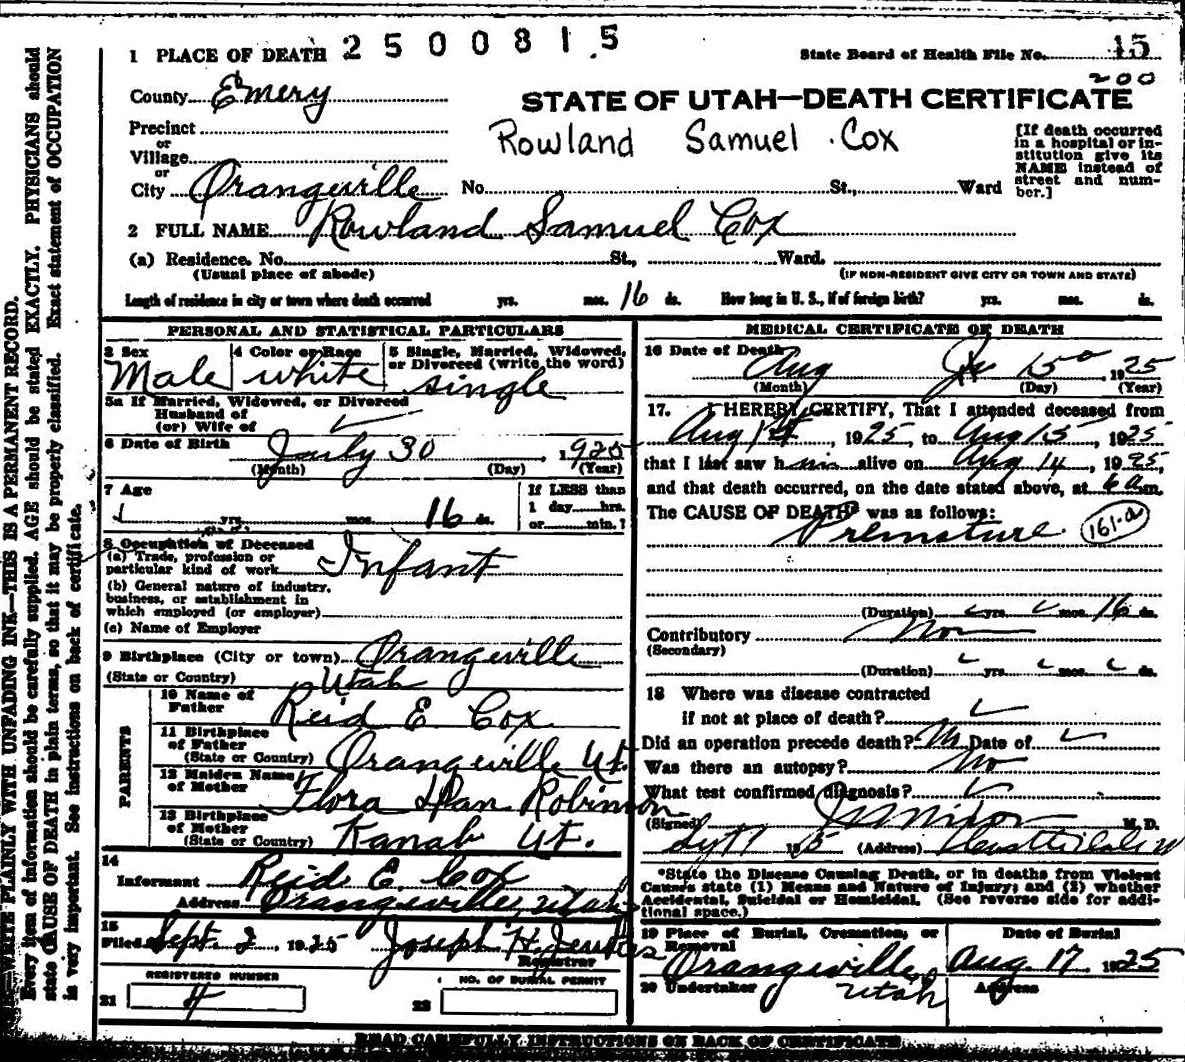 1 PLACE OF DEATH 2500815
State Board of Health File No. 15
200
County Emery
STATE OF UTAH—DEATH CERTIFICATE
Precinct
or
Village
or
City Orangeville No. St., Ward
Rowland Samuel Cox
[If death occurred
in a hospital or in-
stitution give its
NAME instead of
street and num-
ber.]
2 FULL NAME Rowland Samuel Cox
(a) Residence. No. St., Ward.
(Usual place of abode) (IF NON-RESIDENT GIVE CITY OR TOWN AND STATE)
Length of residence in city or town where death occurred yrs. mos. 16 ds. How long in U. S., if of foreign birth? yrs. mos. ds.
PERSONAL AND STATISTICAL PARTICULARS
3 Sex
Male
4 Color or Race
white
5 Single, Married, Widowed,
or Divorced (write the word)
single
5a If Married, Widowed, or Divorced
Husband of
(or) Wife of
6 Date of Birth July 30, 1925
(Month) (Day) (Year)
7 Age
yrs. mos. 16 ds.
If LESS than
1 day hrs.
or min.?
8 Occupation of Deceased
(a) Trade, profession or
particular kind of work Infant
(b) General nature of industry,
business, or establishment in
which employed (or employer)
(c) Name of Employer
9 Birthplace (City or town) Orangeville
(State or Country) Utah
PARENTS
10 Name of
Father Reid E Cox
11 Birthplace
of Father
(State or Country) Orangeville Ut.
12 Maiden Name
of Mother Flora Robinson
13 Birthplace
of Mother
(State or Country) Kanab Ut.
14
Informant Reid E. Cox
Address Orangeville, Utah
15
Filed Sept. 2, 1925 Joseph H. Jewkes
Registrar
REGISTERED NUMBER
21 4
NO. OF BURIAL PERMIT
22
MEDICAL CERTIFICATE OF DEATH
16 Date of Death Aug 15, 1925
(Month) (Day) (Year)
17. I HEREBY CERTIFY, That I attended deceased from
Aug 1st, 1925, to Aug 15, 1925
that I last saw him alive on Aug 14, 1925,
and that death occurred, on the date stated above, at 6 a m.
The CAUSE OF DEATH* was as follows:
Premature 161-a
(Duration) yrs. mos. 16 ds.
Contributory
(Secondary)
(Duration) yrs. mos. ds.
18 Where was disease contracted
if not at place of death?
Did an operation precede death? Date of
Was there an autopsy? No
What test confirmed diagnosis?
(Signed) M. D.
(Address)
*State the Disease Causing Death, or in deaths from Violent
Causes state (1) Means and Nature of Injury; and (2) whether
Accidental, Suicidal or Homicidal. (See reverse side for addi-
tional space.)
19 Place of Burial, Cremation, or
Removal
Orangeville,
Utah
Date of Burial
Aug. 17 1925
20 Undertaker Address
READ CAREFULLY INSTRUCTIONS ON BACK OF CERTIFICATE
WRITE PLAINLY WITH UNFADING INK—THIS IS A PERMANENT RECORD.
Every item of information should be carefully supplied. AGE should be stated EXACTLY. PHYSICIANS should
state CAUSE OF DEATH in plain terms, so that it may be properly classified. Exact statement of OCCUPATION
is very important. See instructions on back of certificate.